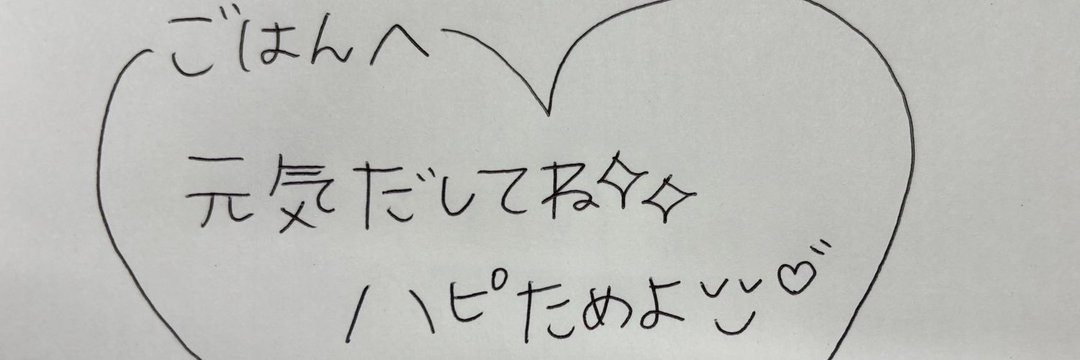 ごはんへ
元気だしてね✧✧
ハピためよ♡